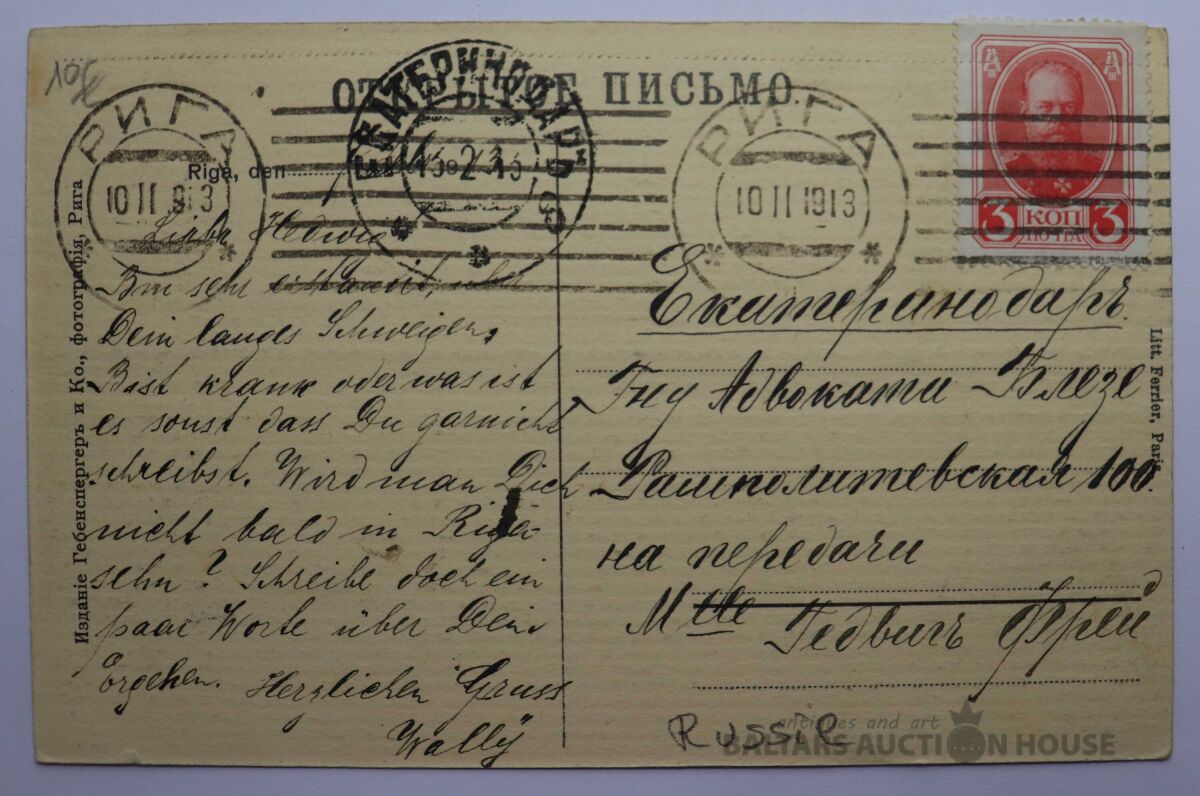 ОТКРЫТОЕ ПИСЬМО.
РИГА
10 II 1913
ЕКАТЕРИНОДАРЪ
13 2 13
РИГА
10 II 1913
3 КОП 3
ПОЧТА
Riga, den
Liebe Hedwig
Bin sehr erstaunt, über
Dein langes Schweigen.
Bist krank oder was ist
es sonst dass Du garnicht
schreibst. Wird man Dich
nicht bald in Riga
sehn? Schreibe doch ein
paar Worte über Dein
Ergehen. Herzlichen Gruss
Wally
Екатеринодаръ.
Гну Адвокати Блезе
Рашпилитевская 100.
на передачи
Mlle Гедвигъ Фрей
Изданіе Гебенспергеръ и Ко., фотографія, Рига
Litt. Ferrier, Paris
RUSSIR
antiques and art
BALTARS AUCTION HOUSE